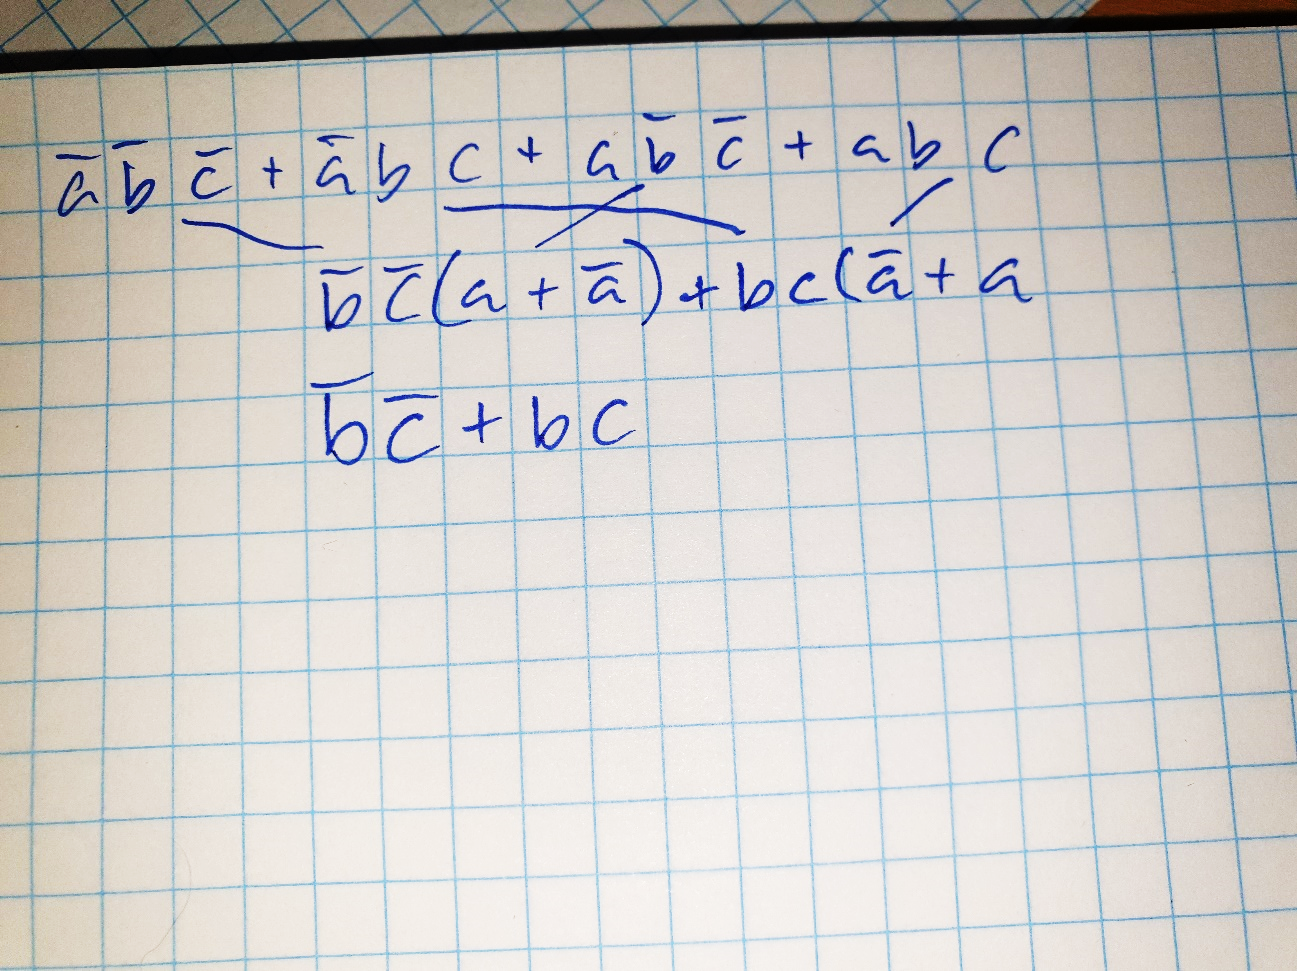 a̅ b̅ c̅ + a̅ b c + a b̅ c̅ + a b c
b̅ c̅ (a + a̅) + b c (a̅ + a
b̅ c̅ + b c